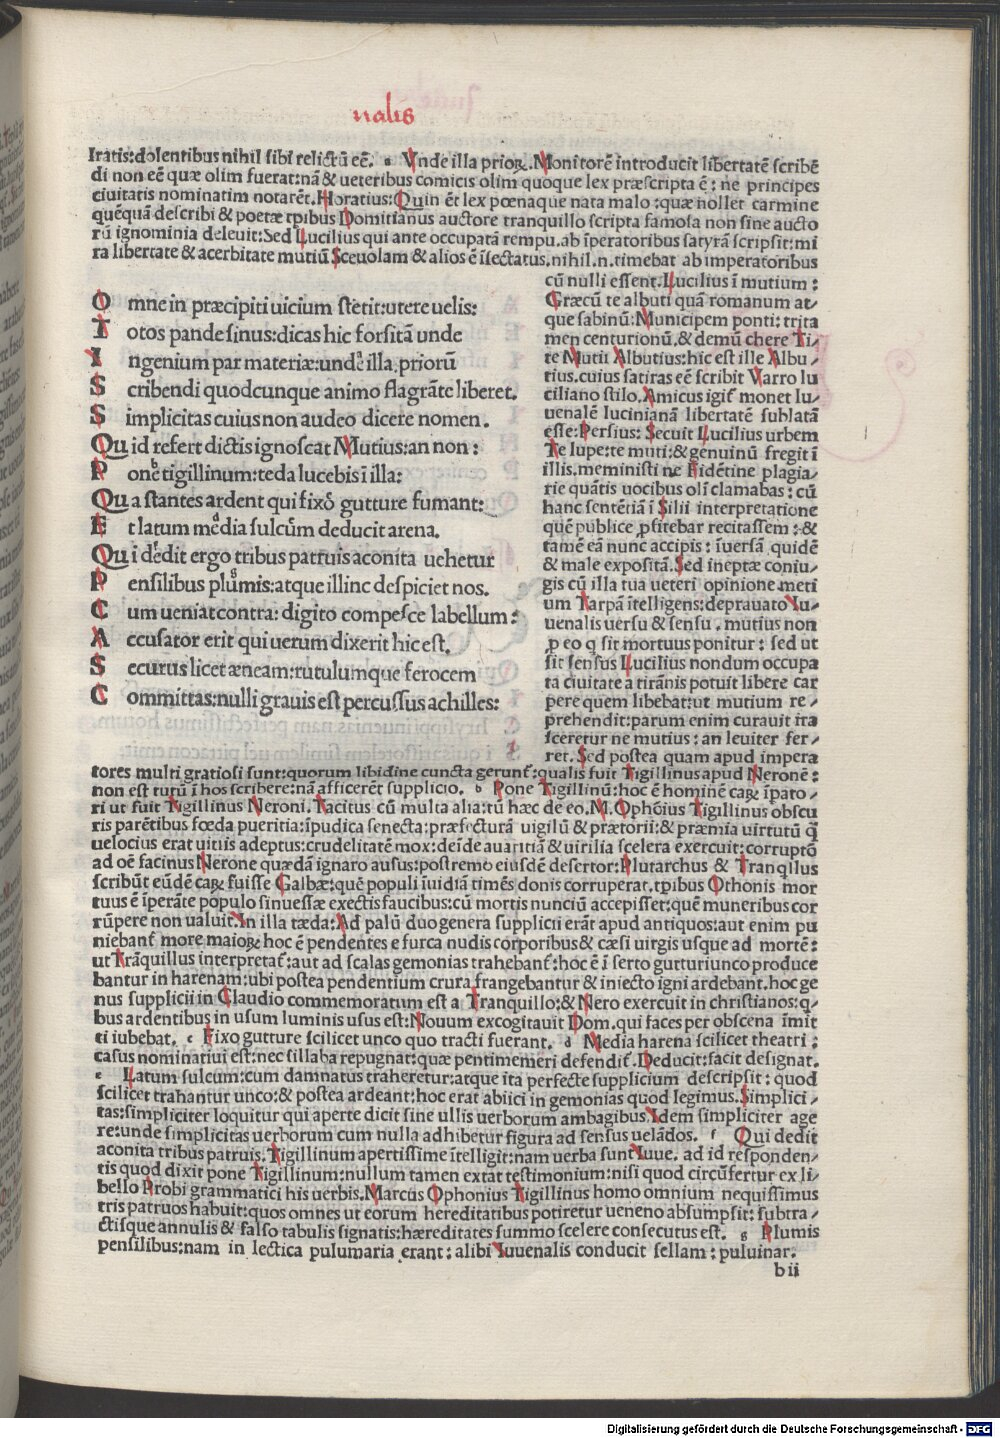 nalis
Iratis:dolentibus nihil sibi relictũ eẽ. a Vnde illa prioꝝ.Monitorẽ introducit libertatẽ scribẽ
di non eẽ quæ olim fuerat:nã & ueteribus comicis olim quoque lex præscripta ẽ: ne principes
ciuitatis nominatim notarẽt.Horatius:Quin ẽt lex pœnaque nata malo:quæ nollet carmine
quẽquã describi & poetæ tp̄ibus Domitianus auctore tranquillo scripta famosa non sine aucto
rũ ignominia deleuit:Sed Lucilius qui ante occupatã rempu.ab ĩperatoribus satyrã scripsit:mi
ra libertate & acerbitate mutiũ Sceuolam & alios ẽ ĩsectatus.nihil.n.timebat ab imperatoribus
O mne in præcipiti uicium stetit:utere uelis:
T otos pande sinus:dicas hic forsitã unde
I ngenium par materiæ:unde illa priorũ
S cribendi quodcunque animo flagrãte liberet.
S implicitas cuius non audeo dicere nomen.
Qu id refert dictis ignoscat Mutius:an non:
P one tigillinum:teda lucebis ĩ illa:
Qu a stantes ardent qui fixo gutture fumant:
E t latum media sulcum deducit arena.
Qu i dedit ergo tribus patruis aconita uehetur
P ensilibus plumis:atque illinc despiciet nos.
C um ueniat contra: digito compesce labellum:
A ccusator erit qui uerum dixerit hic est.
S ecurus licet æneam:rutulumque ferocem
C ommittas:nulli grauis est percussus achilles:
cũ nulli essent.Lucilius ĩ mutium:
Græcũ te albuti quã romanum at/
que sabinũ:Municipem ponti: trita
men centurionũ,& demũ chere Ti/
te Mutii Albutius:hic est ille Albu/
tius.cuius satiras eẽ scribit Varro lu
ciliano stilo.Amicus igit̃ monet Iu/
uenalẽ lucinianã libertatẽ sublatã
esse:Persius: Secuit Lucilius urbem
Te lupe:te muti:& genuinũ fregit ĩ
illis.meministi ne Fidẽtine plagia/
rie quãtis uocibus olĩ clamabas: cũ
hanc sentẽtiã ĩ Silii interpretatione
quẽ publice ꝓfitebar recitassem:&
tamẽ eã nunc accipis: ĩuersã quidẽ
& male expositã.Sed ineptæ coniu/
gis cũ illa tua ueteri opinione meti
um Tarpã ĩtelligens:deprauato Iu/
uenalis uersu & sensu. mutius non
ꝓ eo q sit mortuus ponitur: sed ut
sit sensus Lucilius nondum occupa
ta ciuitate a tirãnis potuit libere car
pere quem libebat:ut mutium re/
prehendit:parum enim curauit ira
sceretur ne mutius: an leuiter fer/
ret. Sed postea quam apud impera
tores multi gratiosi sunt:quorum libidine cuncta gerunt̃:qualis fuit Tigillinus apud Neronẽ:
non est tutũ ĩ hos scribere:nã afficerẽt supplicio. b Pone Tigillinũ:hoc ẽ hominẽ caꝝ ĩpato/
ri ut fuit Tigillinus Neroni.Tacitus cũ multa alia:tũ hæc de eo.M.Ophõius Tigillinus obscu
ris parẽtibus fœda pueritia:ĩpudica senecta:præfecturã uigilũ & prætorii:& præmia uirtutũ q̃
uelocius erat uitiis adeptus:crudelitatẽ mox:deĩde auaritiã & uirilia scelera exercuit:corruptõ
ad oẽ facinus Nerone quædã ignaro ausus:postremo eiusdẽ desertor:Plutarchus & Tranqllus
scribũt eũdẽ caꝝ fuisse Galbæ:quẽ populi ĩuidiã timẽs donis corruperat.tp̄ibus Othonis mor
tuus ẽ ĩperãte populo sinuessæ exectis faucibus:cũ mortis nunciũ accepisset:quẽ muneribus cor
rũpere non ualuit.In illa tæda:Ad palũ duo genera supplicii erãt apud antiquos:aut enim pu
niebant̃ more maioꝝ hoc ẽ pendentes e furca nudis corporibus & cæsi uirgis usque ad mortẽ:
ut Trãquillus interpretat̃:aut ad scalas gemonias trahebant̃:hoc ẽ ĩ serto gutturi unco produce
bantur in harenam:ubi postea pendentium crura frangebantur & iniecto igni ardebant.hoc ge
nus supplicii in Claudio commemoratum est a Tranquillo:& Nero exercuit in christianos:q/
bus ardentibus in usum luminis usus est:Nouum excogitauit Dom.qui faces per obscena ĩmit
ti iubebat. c Fixo gutture scilicet unco quo tracti fuerant. d Media harena scilicet theatri:
casus nominatiui est:nec sillaba repugnat:quæ pentimemeri defendit̃.Deducit:facit designat.
e Latum sulcum:cum damnatus traheretur:atque ita perfecte supplicium descripsit: quod
scilicet trahantur unco:& postea ardeant:hoc erat abiici in gemonias quod legimus.Simplici/
tas:simpliciter loquitur qui aperte dicit sine ullis uerborum ambagibus.Idem simpliciter age
re:unde simplicitas uerborum cum nulla adhibetur figura ad sensus uelãdos. f Qui dedit
aconita tribus patruis.Tigillinum apertissime ĩtelligit:nam uerba sunt Iuue. ad id responden/
tis quod dixit pone Tigillinum:nullum tamen extat testimonium:nisi quod circũfertur ex li/
bello Probi grammatici his uerbis.Marcus Ophonius Tigillinus homo omnium nequissimus
tris patruos habuit:quos omnes ut eorum hereditatibus potiretur ueneno absumpsit: subtra/
ctisque annulis & falso tabulis signatis:hæreditates summo scelere consecutus est. g Plumis
pensilibus:nam in lectica pulumaria erant: alibi Iuuenalis conducit sellam: puluinar.
b ii
Digitalisierung gefördert durch die Deutsche Forschungsgemeinschaft - DFG